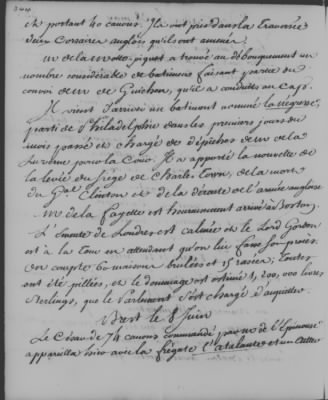 344
et portant 40 canons. Ils ont pris dans la traversée
deux Corsaires anglois qu'ils ont amenés.
M de la Motte-piquet a trouvé au débouquement un
nombre considérable de batimens faisant partie du
convoi de M de Guichen, qu'il a conduites au Cap.
Il vient d'arriver un batiment nommé la négresse,
parti de Philadelphie dans les premiers jours du
mois passé et chargé de dépêches de M de la
Luzerne pour la Cour. Il a apporté la nouvelle de
la levée du siege de Charles-Town, de la mort
du Gal Clinton et de la déroute de l'armée angloise
M de la fayette est heureusement arrivé à Boston.
L'Emeute de Londres est calmée et le Lord Gordon
est à la tour en attendant qu'on lui fasse son procès.
On compte 60 maisons brulées et 15 rasées; toutes
ont été pillées, et le dommage est estimé 1,200,000 livres
Sterlings, que le Parlement s'est chargé d'acquitter.
Brest le 8 Juin
Le César de 74 canons commandé par M de l'Epinouse
appareilla hier avec la frégate l'atalante et un Cutter